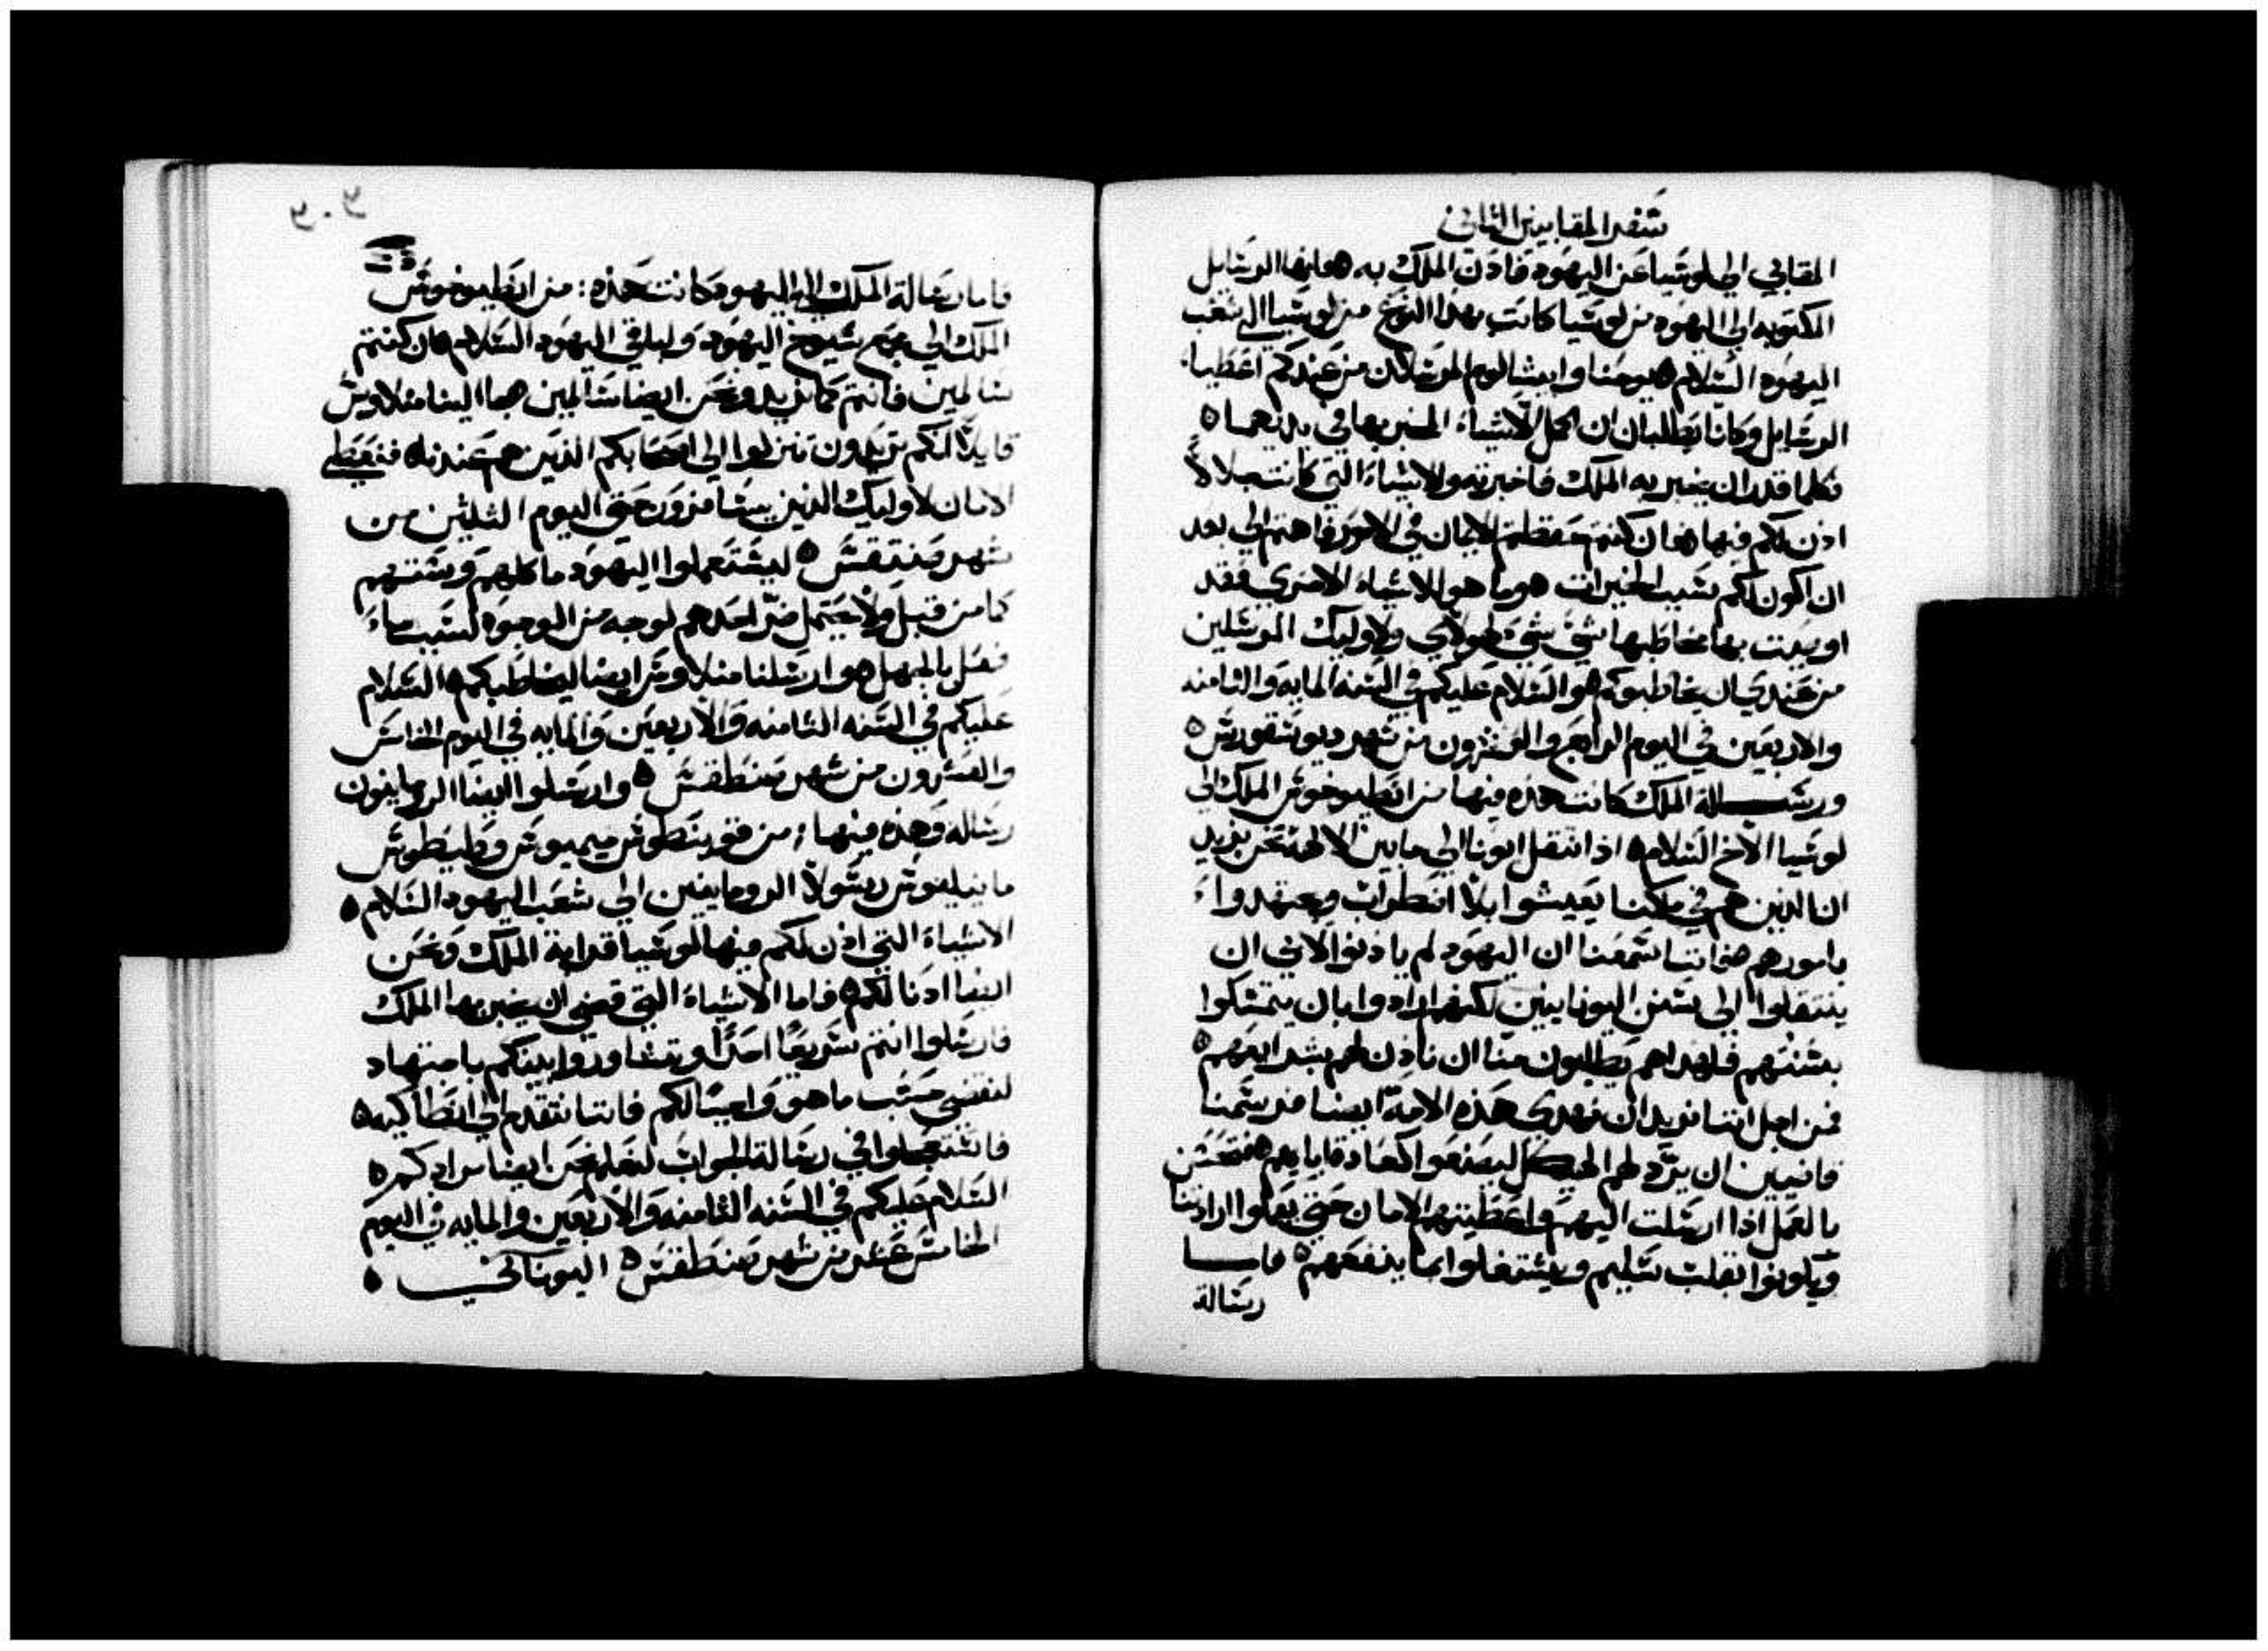 سفر المقابيين الثاني
المقابي الي لوسيا عن اليهود فاذن الملك به هو فانها الرسايل
المكتوبه الي اليهود من لوسيا كانت بهذا النوع من لوسيا الي شعب
اليهود السلام هو يوحنا وابيشالوم المرسلان من عندكم اعطيا
الرسايل وكانا يطلبان ان اكمل الاشياء المخبر بها في يديهما ه
فكلما قدر ان يخبر به الملك فاخبرته والاشياء التي كانت جلالاً
اذن لكم فيها هو ان كنتم حفظتم الايمان في الامور فاهتم الي بعد
ان اكون لكم سبب الخيرات هو وما هو الاشياء الاخري فقد
اوصيت بها مخاطبها شي شي لهولاي ولاوليك المرسلين
من عندي ان يخاطبوكم هو السلام عليكم في السنه المايه والثامنه
والاربعين في اليوم الرابع والعشرون من شهر ديوسقورس ه
ورسالة الملك كانت هذه فيها من انطيوخوس الملك الي
لوسيا الاخ السلام ه اذا انتقل ابونا الي ما بين الالهه نحن نريد
ان الذين هم في ملكنا يعيشوا بلا اضطراب ويجتهدوا
بامورهم هو اننا سمعنا ان اليهود لم ياذنوا لابي ان
ينتقلوا الي سنن اليونانيين لكنهم ارادوا بان يتمسكوا
بسنتهم فلهذا هم يطلبون منا ان ناذن لهم بشرايعهم ه
فمن اجل اننا نريد ان تهدي هذه الامة ايضا فرسمنا
قانيين ان يرد لهم الهيكل ليصنعوا كعادة ابايهم هو فتحسن
بالعمل اذا ارسلت اليهم واعطيتهم الامان حتي يعلموا ارادتنا
ويكونوا بقلب سليم ويشتغلوا بما ينفعهم ه فاما
رسالة
فاما رسالة الملك الي اليهود كانت هذه: من انطيوخوس
الملك الي مجمع شيوخ اليهود ولباقي اليهود السلام هو ان كنتم
سالمين فانتم كما نريد ونحن ايضا سالمين هو جا الينا منلاوس
قايلاً انكم تريدون تنزلوا الي اصحابكم الذين هم عندنا ه فنعطي
الامان لاوليك الذين يسافرون حتي اليوم الثلثين من
شهر صنتقس ه ليستعملوا اليهود ماكلهم وسنتهم
كما من قبل ولا يحتمل ضر احدهم لوجه من الوجوه لسبب ما
فعل بالجهل هو ارسلنا منلاوس ايضا ليخاطبكم ه السلام
عليكم في السنه الثامنه والاربعين والمايه في اليوم الخامس
والعشرون من شهر صنطقس ه وارسلوا ايضا الرومانيون
رساله وهذه فيها: من قوينطوس ميميوس وطيطوس
مانيليوس رسولا الرومانيين الي شعب اليهود السلام ه
الاشياء التي اذن لكم فيها لوسيا قرابة الملك ونحن
ايضا اذنا لكم ه فاما الاشياء التي قضي ان يخبر بها الملك
فارسلوا انتم سريعاً احداً وتشاوروا بينكم باجتهاد
لنقضي حسب ما هو واجبا لكم فاننا نتقدم الي انطاكيه ه
فاستعجلوا في رسالة الجواب لنعلم نحن ايضا مرادكم ه
السلام عليكم في السنه الثامنه والاربعين والمايه في اليوم
الخامس عشر من شهر صنطقس ه